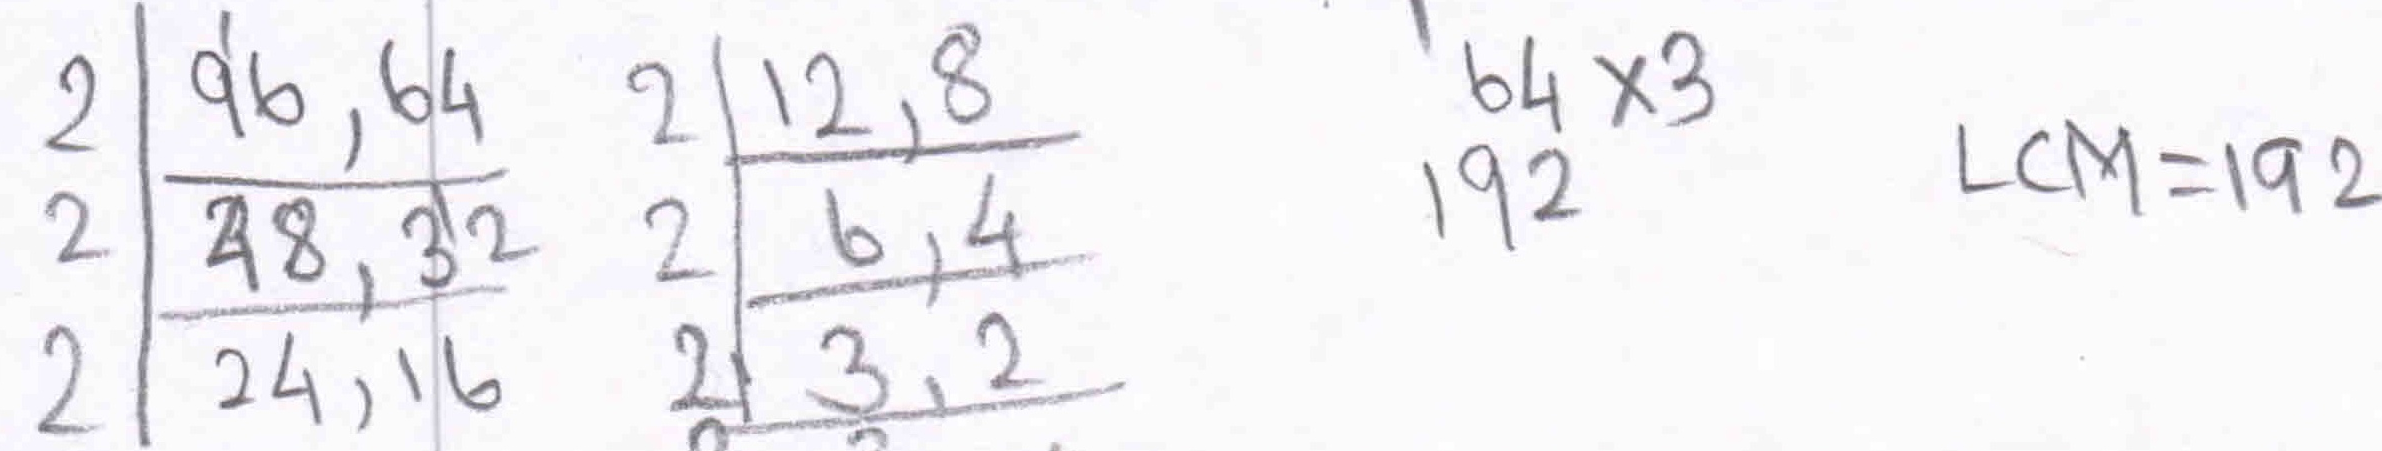 2 | 96, 64
2 | 48, 32
2 | 24, 16
2 | 12, 8
2 | 6, 4
2 | 3, 2
64 × 3
192
LCM = 192